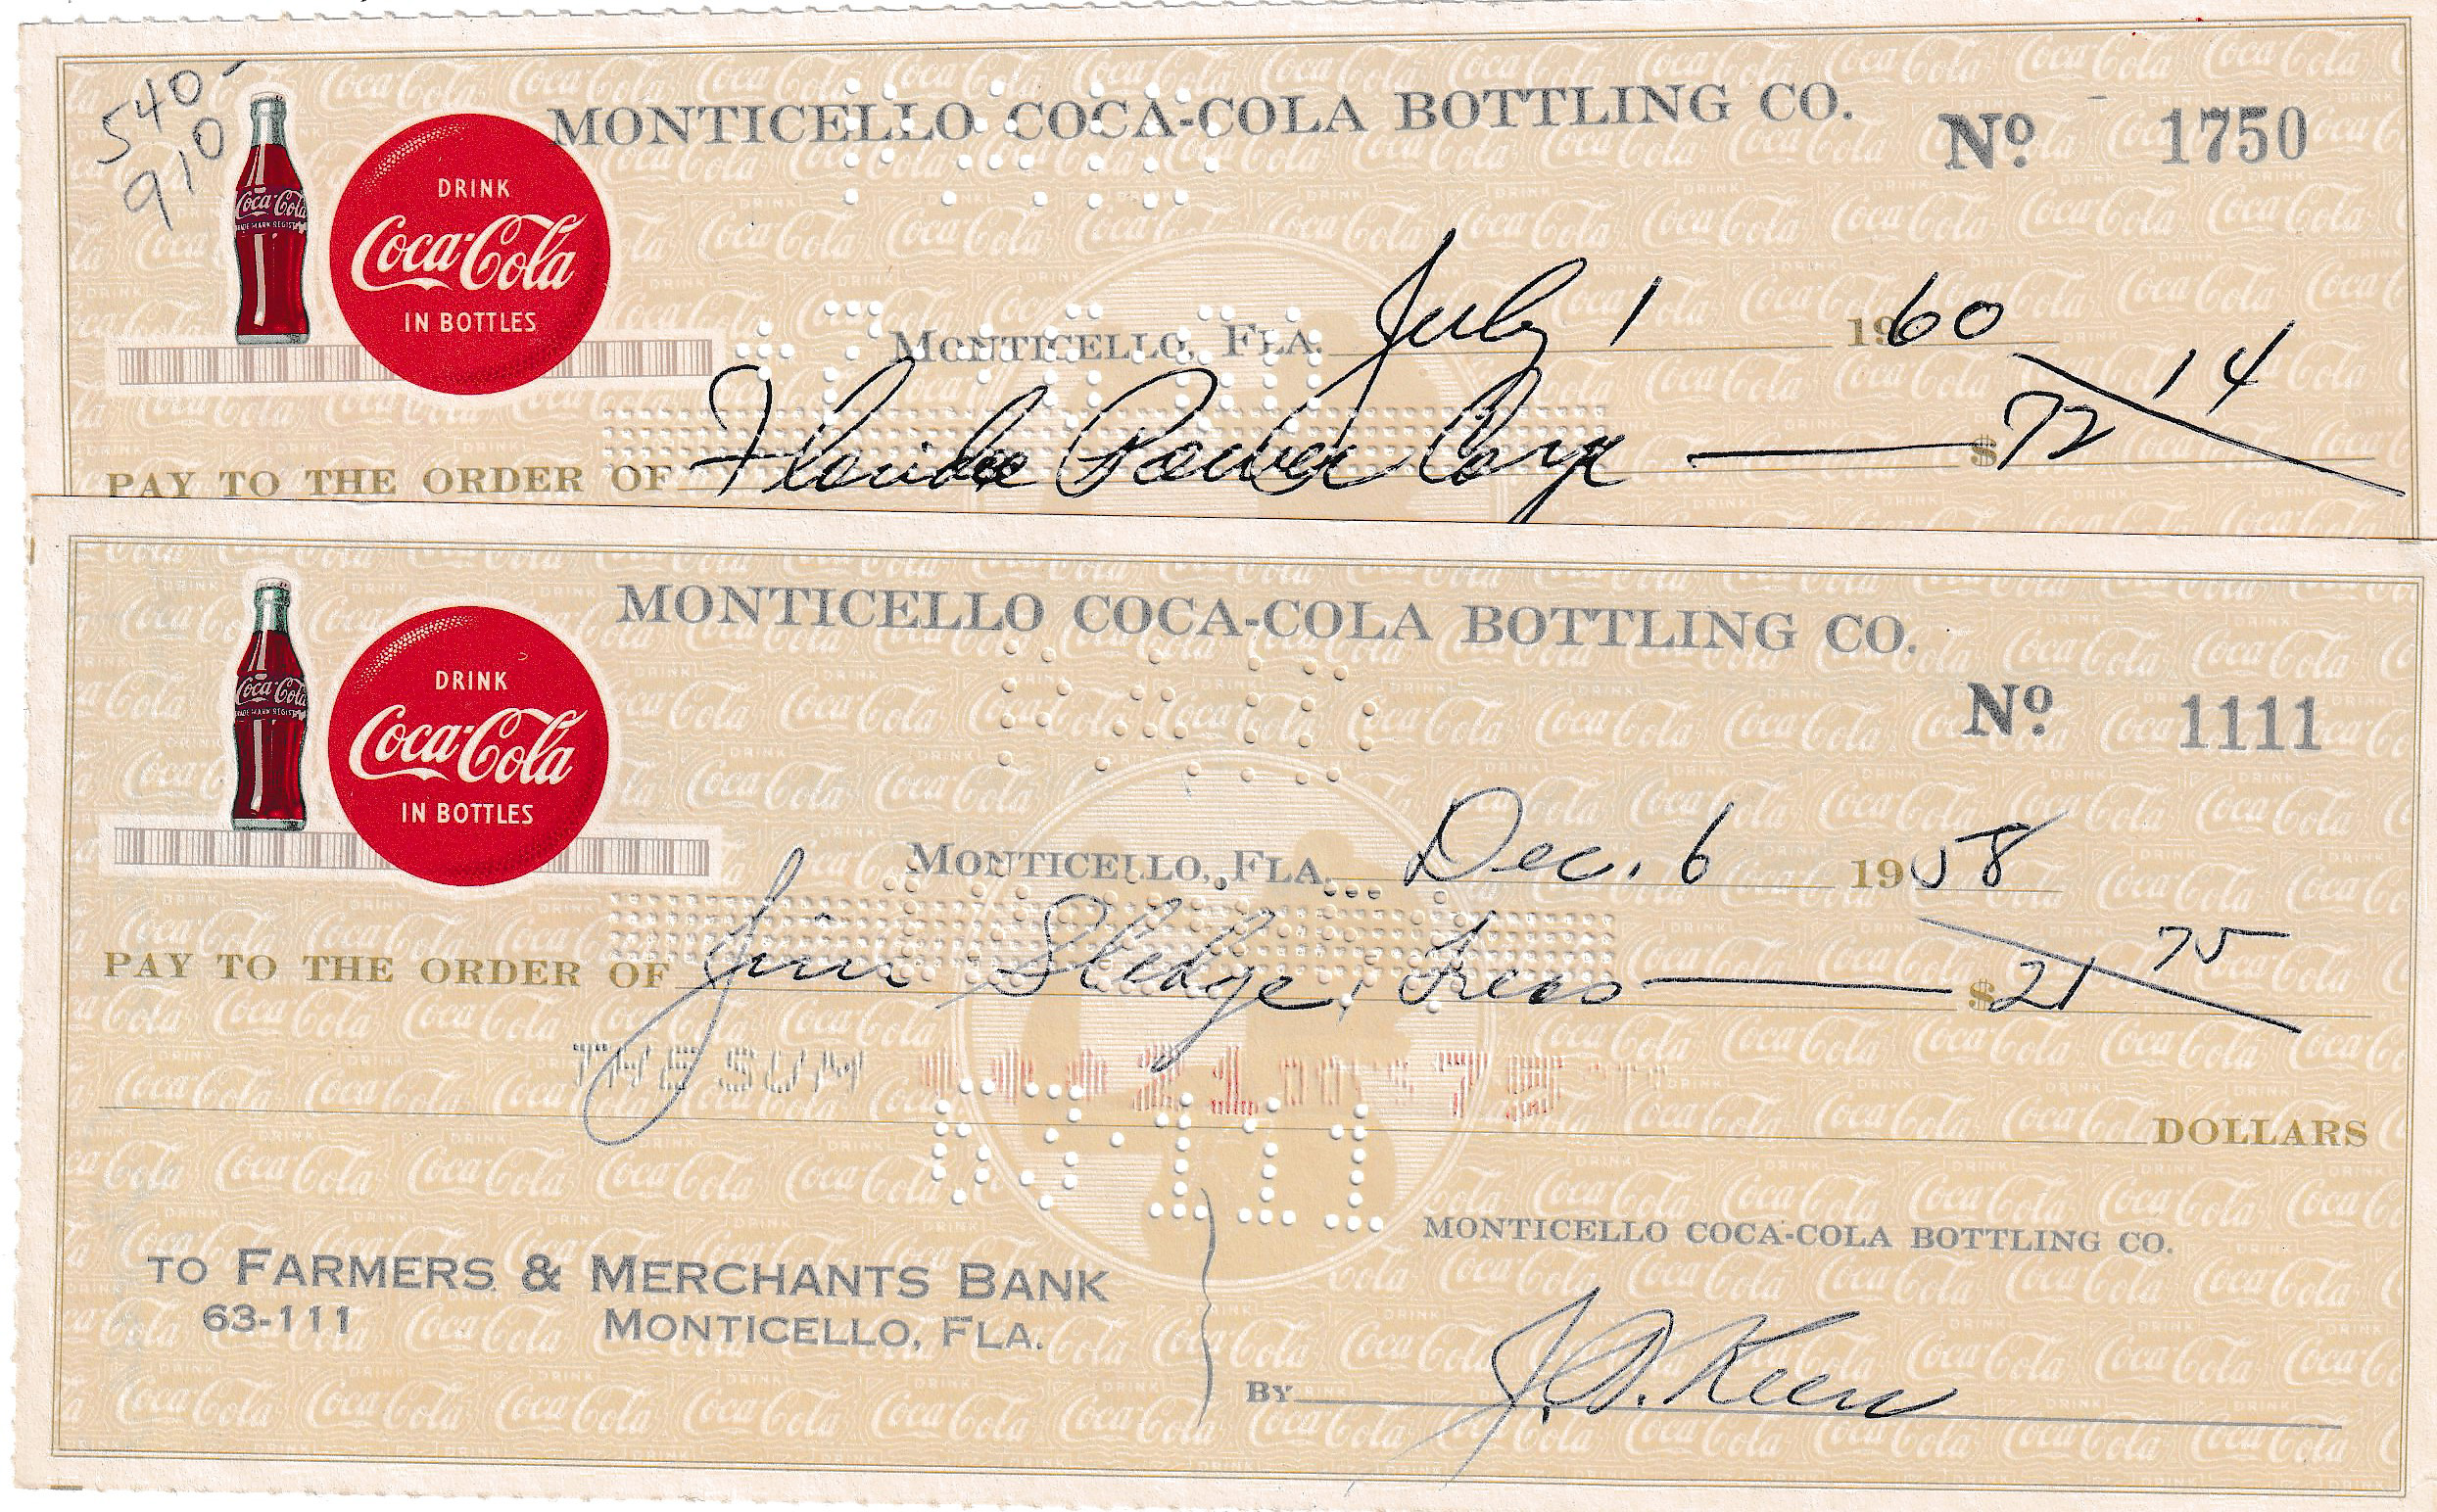 540-
910
MONTICELLO COCA-COLA BOTTLING CO.
Nº 1750
Coca-Cola
TRADE MARK REGISTERED
DRINK
Coca-Cola
IN BOTTLES
MONTICELLO, FLA. July 1 1960
PAY TO THE ORDER OF Florida Power Corp $72 14
MONTICELLO COCA-COLA BOTTLING CO.
Nº 1111
Coca-Cola
DRINK
Coca-Cola
IN BOTTLES
MONTICELLO, FLA. Dec. 6 1958
PAY TO THE ORDER OF Jim Sledge, Treas $21 75
THE SUM 21 75
DOLLARS
MONTICELLO COCA-COLA BOTTLING CO.
TO FARMERS & MERCHANTS BANK
63-111 MONTICELLO, FLA.
BY J. D. Keen